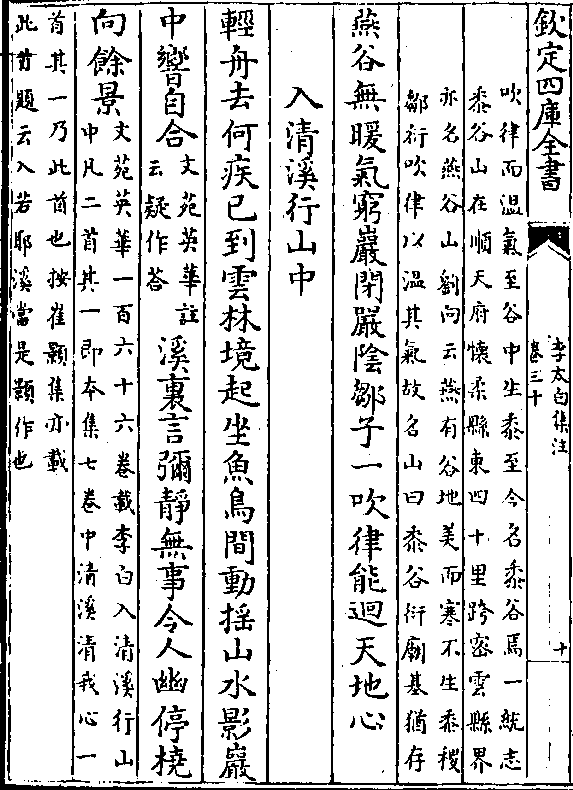 欽定四庫全書
李太白集注
卷三十
十
吹律而溫氣至谷中生黍至今名黍谷焉一統志
黍谷山在順天府懷柔縣東四十里跨密雲縣界
亦名燕谷山劉向云燕有谷地美而寒不生黍稷
鄒衍吹律以溫其氣故名山曰黍谷衍廟基猶存
燕谷無暖氣窮巖閉嚴陰鄒子一吹律能迴天地心
入清溪行山中
輕舟去何疾已到雲林境起坐魚鳥間動揺山水影巖
中響自合
文苑英華註
云疑作荅
溪裏言彌靜無事令人幽停橈
向餘景
文苑英華一百六十六卷載李白入清溪行山
中凡二首其一即本集七卷中清溪清我心一
首其一乃此首也按崔顥集亦載
此首題云入若耶溪當是顥作也